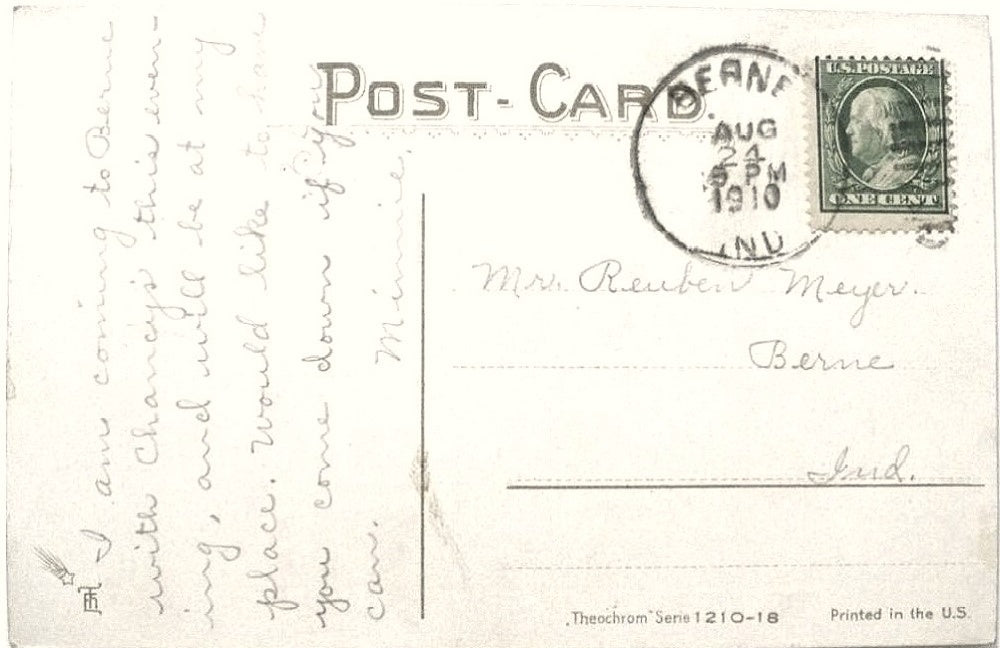 POST-CARD.
BERNE
AUG
24
5 PM
1910
IND
U.S. POSTAGE
ONE CENT
I am coming to Berne
with Chancy's this even-
ing, and will be at my
place. Would like to have
you come down if you
can.
Minnie
Mr. Reuben Meyer.
Berne
Ind.
"Theochrom" Serie 1210-18
Printed in the U.S.